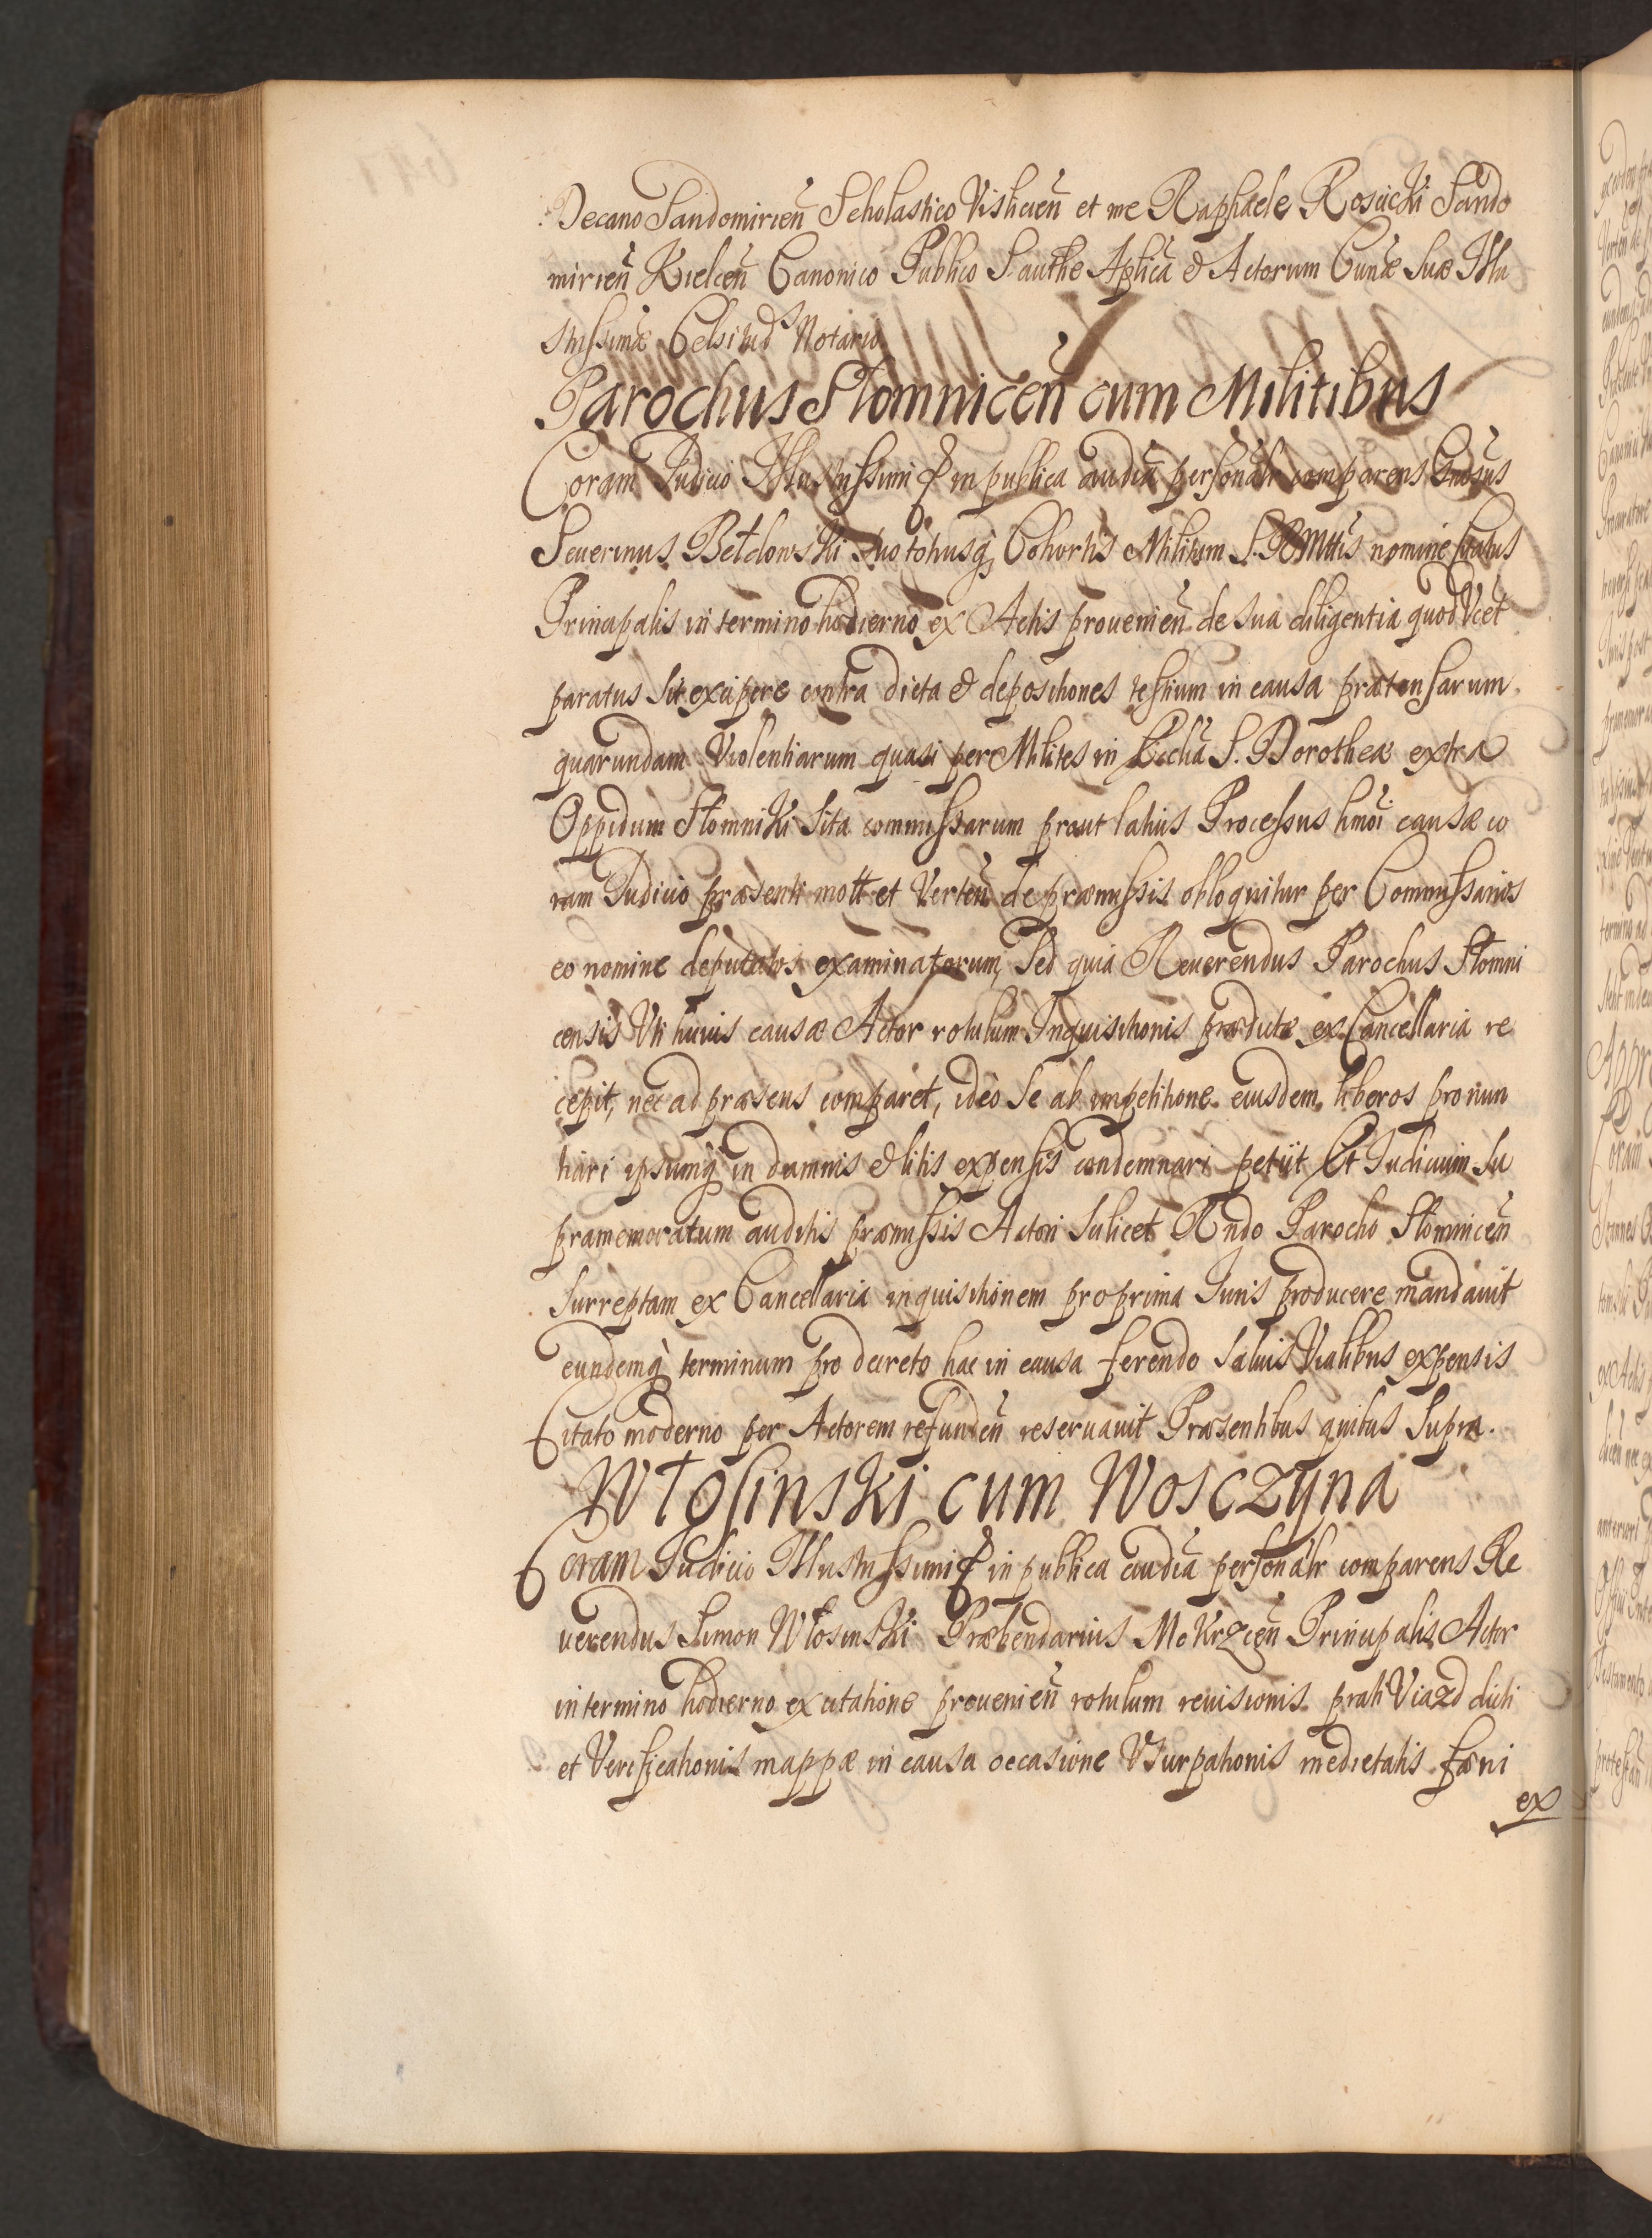 Decano Sandomirien̄ Scholastico Visliciēn et me Raphaele Rosiicki Sando
mirien̄ Kielcen̄ Canonico Publico S. autħe Aplicā & Actorum Curiæ Suæ Illu
strissimæ Celsitud̄s Notario
Parochus Słomnicen̄ cum Militibus
Coram Judicio Illustrissimi & in publica audiā personalr comparens Gnosus
Seuerinus Bełdowski suo totiusq̢ Cohortis Militum S. R. Mttis nomine
Principalis in termino hodierno ex Actis prouenien̄ de sua diligentia quod licet
paratus sit excipere contra dicta & depositiones testium in causa prætensarum
quarundam Violentiarum quasi per Milites in Ecclīa S. Dorotheæ extra
Oppidum Słomniki sita commissarum prout latius Processus hmōi causæ co
ram Judicio præsenti mott et Verten̄ de præmissis obloquitur per Commissarios
eo nomine deputatos examinatorum, Sed quia Reuerendus Parochus Słomni
censis Uti huius causæ Actor rotulum Inquisitionis prædictæ ex Cancellaria re
cepit, nec ad præsens comparet, ideo se ab impetitione eiusdem liberos pronun
tiari ipsumq̢ in damnis & litis expensis condemnari petiit Et Judicium su
pramemoratum auditis præmissis Actori scilicet Rndo Parocho Słomnicen̄
surreptam ex Cancellaria inquisitionem pro prima Juris producere mandauit
eundemq̢ terminum pro decreto hac in causa ferendo saluis Vialibus expensis
Citato moderno per Actorem refunden̄ reseruauit Præsentibus quibus supra.
Włosinski cum Wosczyna
Coram Judicio Illustrissimi & in publica audiā personalr comparens Re
uerendus Simon Włosinski Præbendarius Mokrzcen̄ Principalis Actor
in termino hodierno ex citatione prouenien̄ rotulum reuisionis prati Viazd dicti
et Verificationis mappæ in causa occasione Vsurpationis medietatis fæni
ex